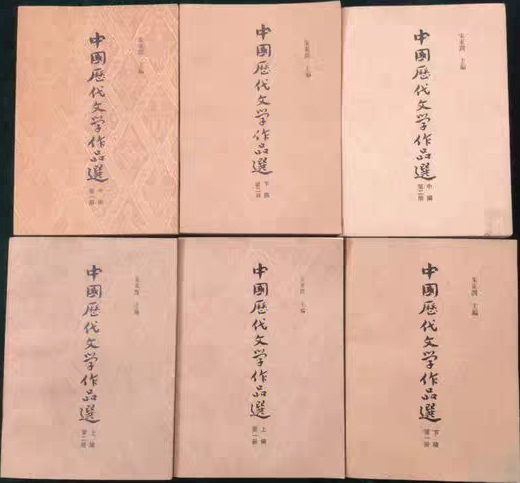 朱東潤 主編
中國歷代文学作品選
中編
第一册
朱東潤 主編
中國歷代文学作品選
下編
第二册
朱東潤 主編
中國歷代文学作品選
中編
第二册
朱東潤 主編
中國歷代文学作品選
上編
第二册
朱東潤 主編
中國歷代文学作品選
上編
第一册
朱東潤 主編
中國歷代文学作品選
下編
第一册